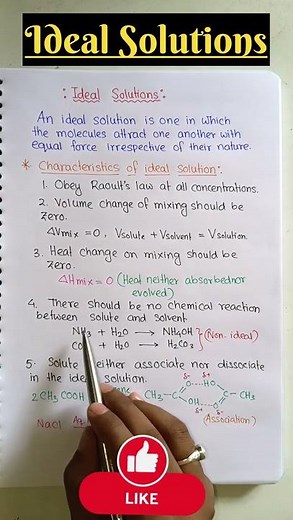 Ideal Solutions
: Ideal Solutions:
An ideal solution is one in which
the molecules attract one another with
equal force irrespective of their nature.
* Characteristics of ideal solution:
1. Obey Raoult's law at all concentrations.
2. Volume change of mixing should be
zero.
ΔVmix = 0, Vsolute + Vsolvent = Vsolution.
3. Heat change on mixing should be
zero.
ΔHmix = 0 (Heat neither absorbed nor
evolved)
4. There should be no chemical reaction
between solute and solvent
NH3 + H2O → NH4OH } (Non. ideal)
+ H2O → H2CO3
5. Solute neither associate nor dissociate
in the ideal solution.
2CH3COOH CH3-C O HO C-CH3
OH O
NaCl (Association)
LIKE